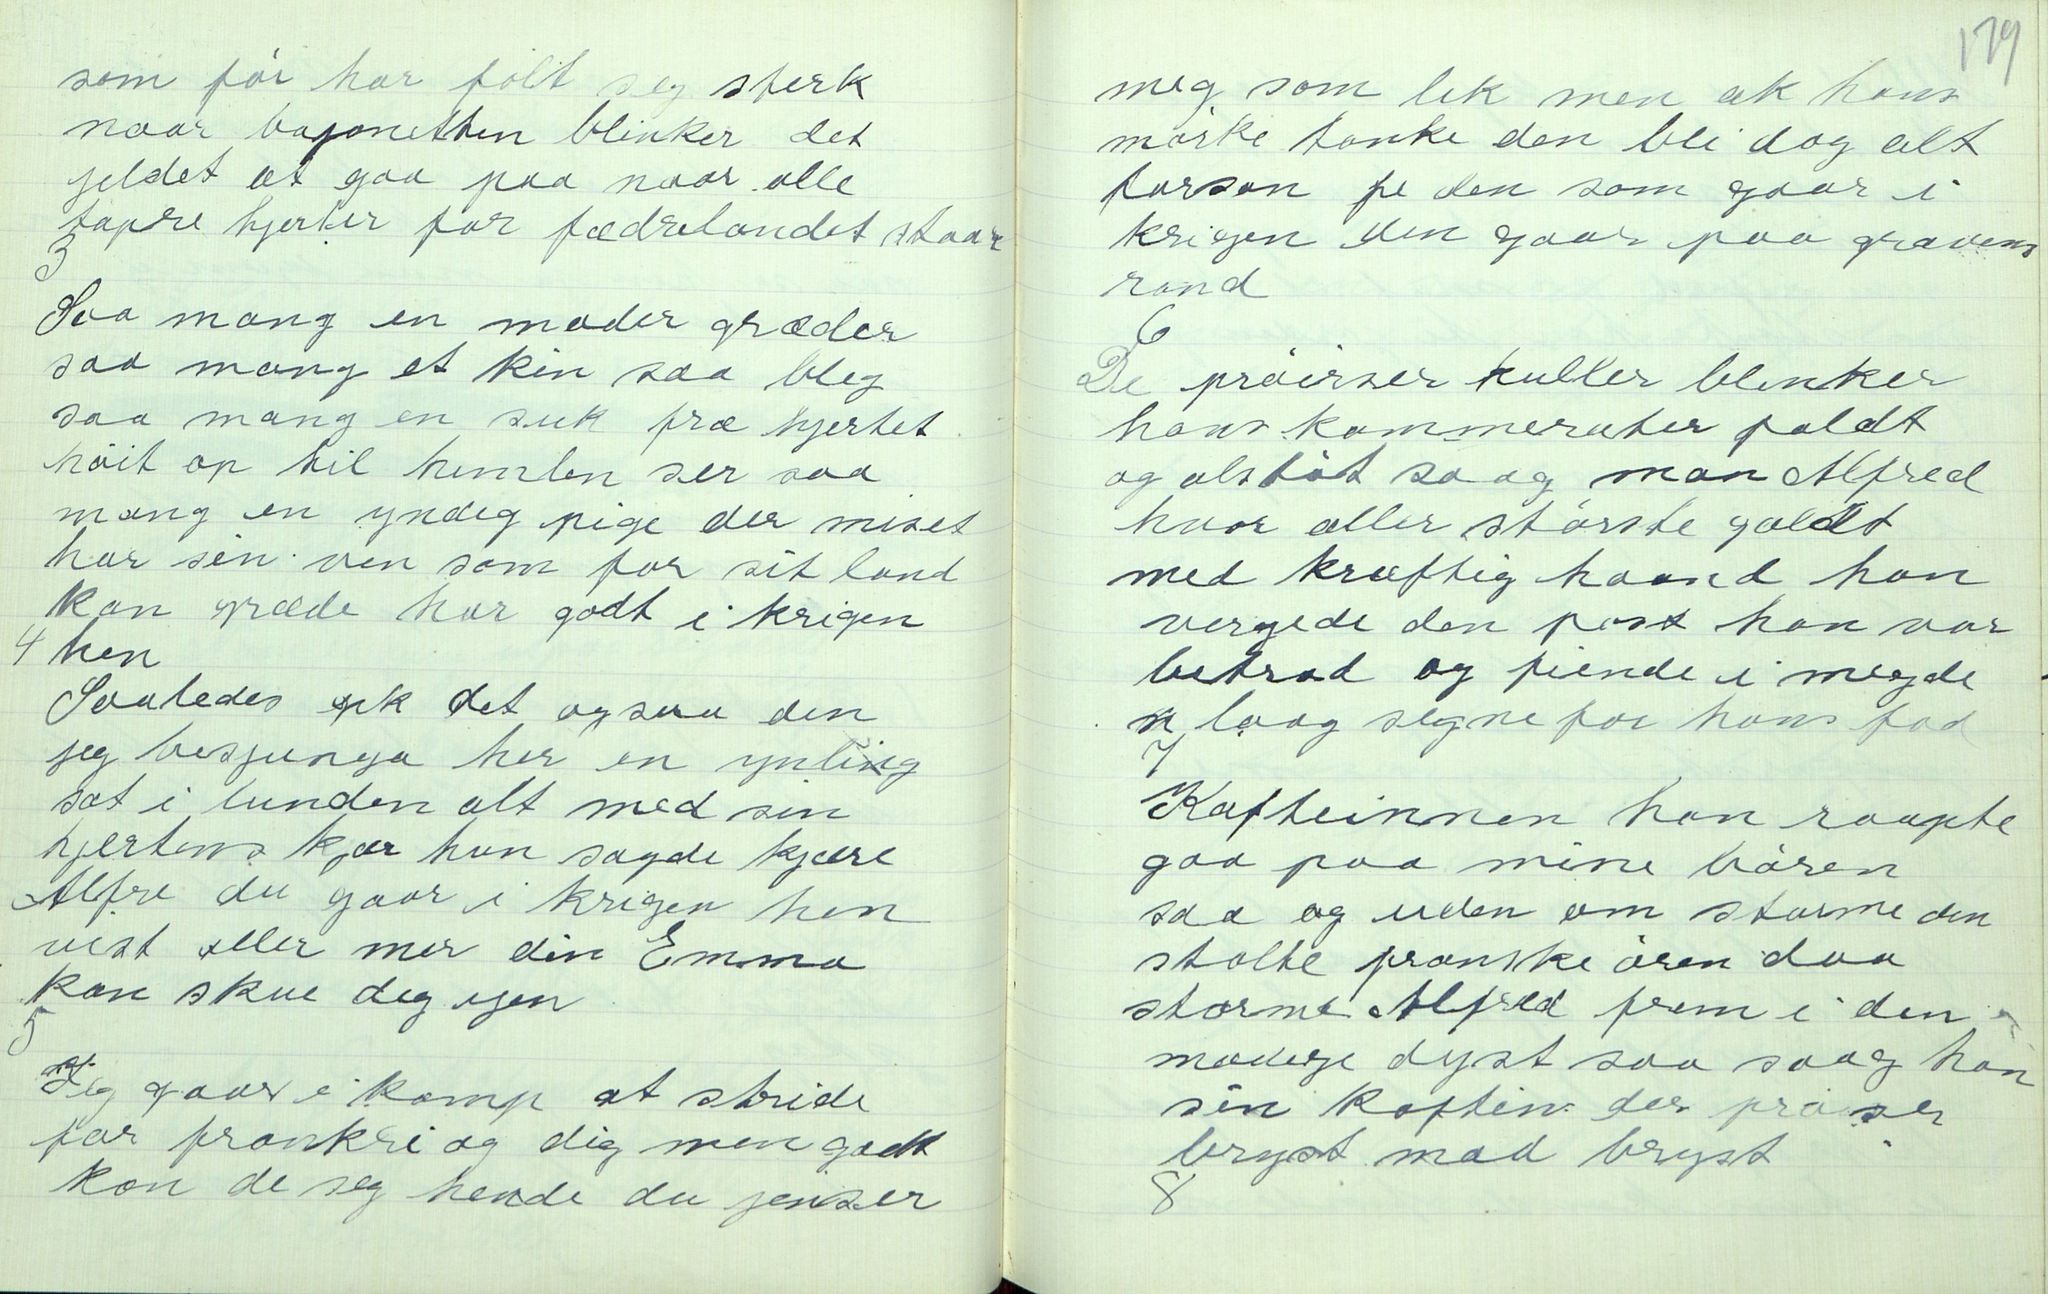 som för har fölt seg sterk
naar bajonetten blinker det
jeldet at gaa paa naar alle
tapre hjerter for fædrelandet staar
3
Saa mang en moder græder
saa mang et kin saa bleg
saa mang en suk fra hjertet
höit op til himlen ser saa
mang en yndig pige der miset
har sin ven som for sit land
kan græde har godt i krigen
4 hen
Saaledes gik det ogsaa den
jeg besjunga her en ynling
sat i lunden alt med sin
hjertens kjær hun sagde kjære
Alfre du gaar i krigen hen
vist aller mer din Emma
kan skue deg igen
5
Jeg gaar i kamp at stride
for frankri og dig men godt
kan de seg hende du jenser
179
meg som lik men ak hans
mörke tanke den bli dog alt
forson je den som gaar i
krigen den gaar paa gravens
rand
6
De pröirser kuller blinker
hans kammerater faldt
og alstöt saag man Alfred
hvor aller störste galdt
med kræftig haand han
vergede den post han var
betrod og fiende i megde
n laag segne for hans fod
7
Kafteinnen han raapte
gaa paa mine bören
saa og uden om storme den
stolte franske ören daa
storme Alfred frem i den
moderge dyst saa saag han
sin kaftein der pröiser
bryst mod bryst
8